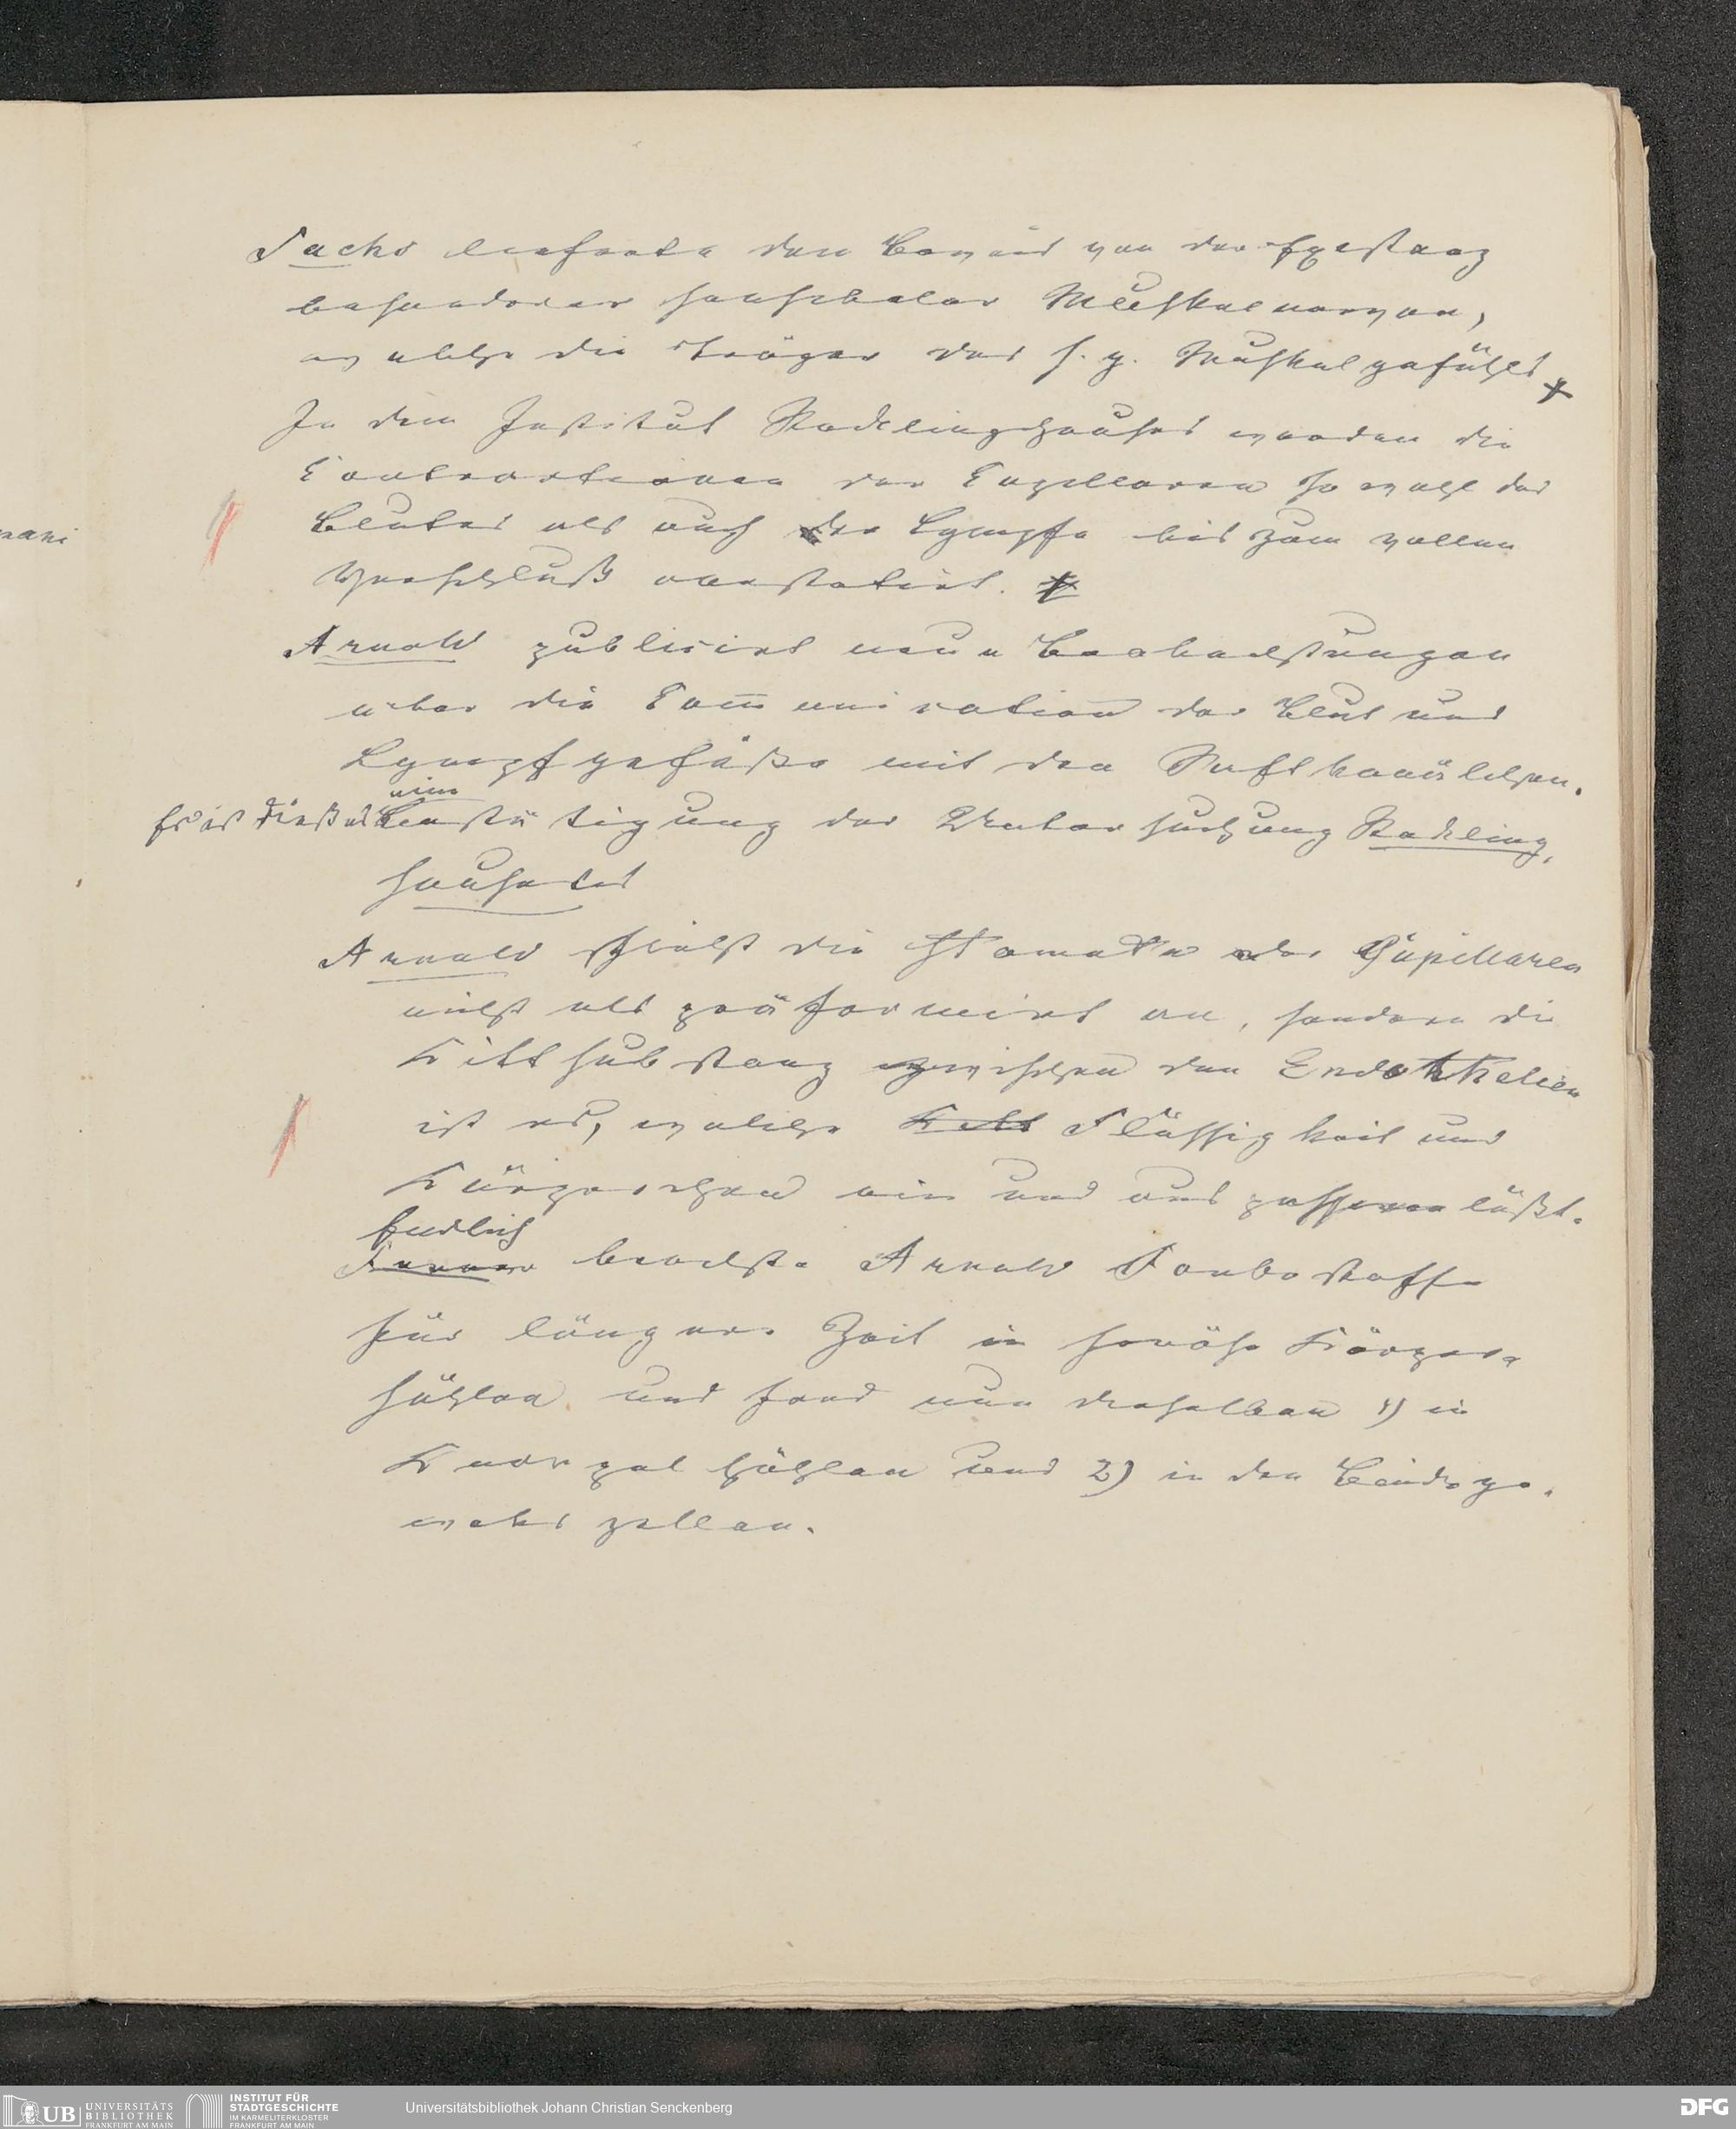 Sachs lieferte den Beweis von der Existenz
besonderer sensibeler Muskelnerven,
welche die Träger des s. g. Muskelgefühls
In dem Institut Recklinghauses werden die
Contractionen der Capillaren so wohl des
Blutes als auch der Lymphe bis zum vollen
Verschluß constatirt.
Arnold publicirt neue Beobachtungen
über die Communication der Blut und
Lympfgefäße mit den Saftkanälchen.
eine
Es ist dieß als Bestätigung der Untersuchung Reckling,
hausens
Arnold die Stomata der Capillaren
nicht als präformirt an, sondern die
Kittsubstanz zwischen den Endothelien
ist es, welche Kitt Flüssigkeit und
Körperchen ein und aus passiren läßt.
Endlich
Ferner brachte Arnold Farbestoffe
für längere Zeit in seröse Körper,
höhlen und fand nun dieselben 1) in
Knorpelhöhlen und 2) in den Bindege,
webszellen.
nani
UB
UNIVERSITÄTS
BIBLIOTHEK
FRANKFURT AM MAIN
INSTITUT FÜR
STADTGESCHICHTE
IM KARMELITERKLOSTER
FRANKFURT AM MAIN
Universitätsbibliothek Johann Christian Senckenberg
DFG